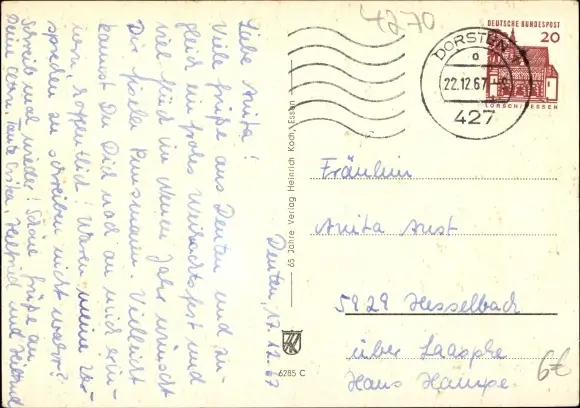 4270
DEUTSCHE BUNDESPOST
20
LORSCH/HESSEN
DORSTEN 1
22.12.67
427
Deuten, 17.12.67
Liebe Anita!
Viele Grüße aus Deuten und zu-
gleich ein frohes Weihnachtsfest und
viel Glück im Neuen Jahr wünscht
Dir Familie
Vielleicht
kannst Du Dich noch an mich erin-
nern, hoffentlich! Waren meine Ver-
sprechen zu schreiben nicht wahr?
Schreib mal wieder! Schöne Grüße an
Deine Eltern, Tante Erika, Helfrid und
65 Jahre Verlag Heinrich Koch, Essen
6285 C
Fräulein
Anita Aust
5929 Hesselbach
über Laasphe
Haus Hampe.
6€